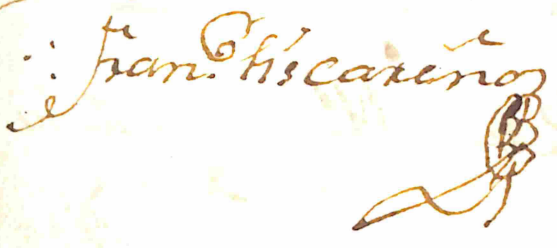 Fran.co liscareño